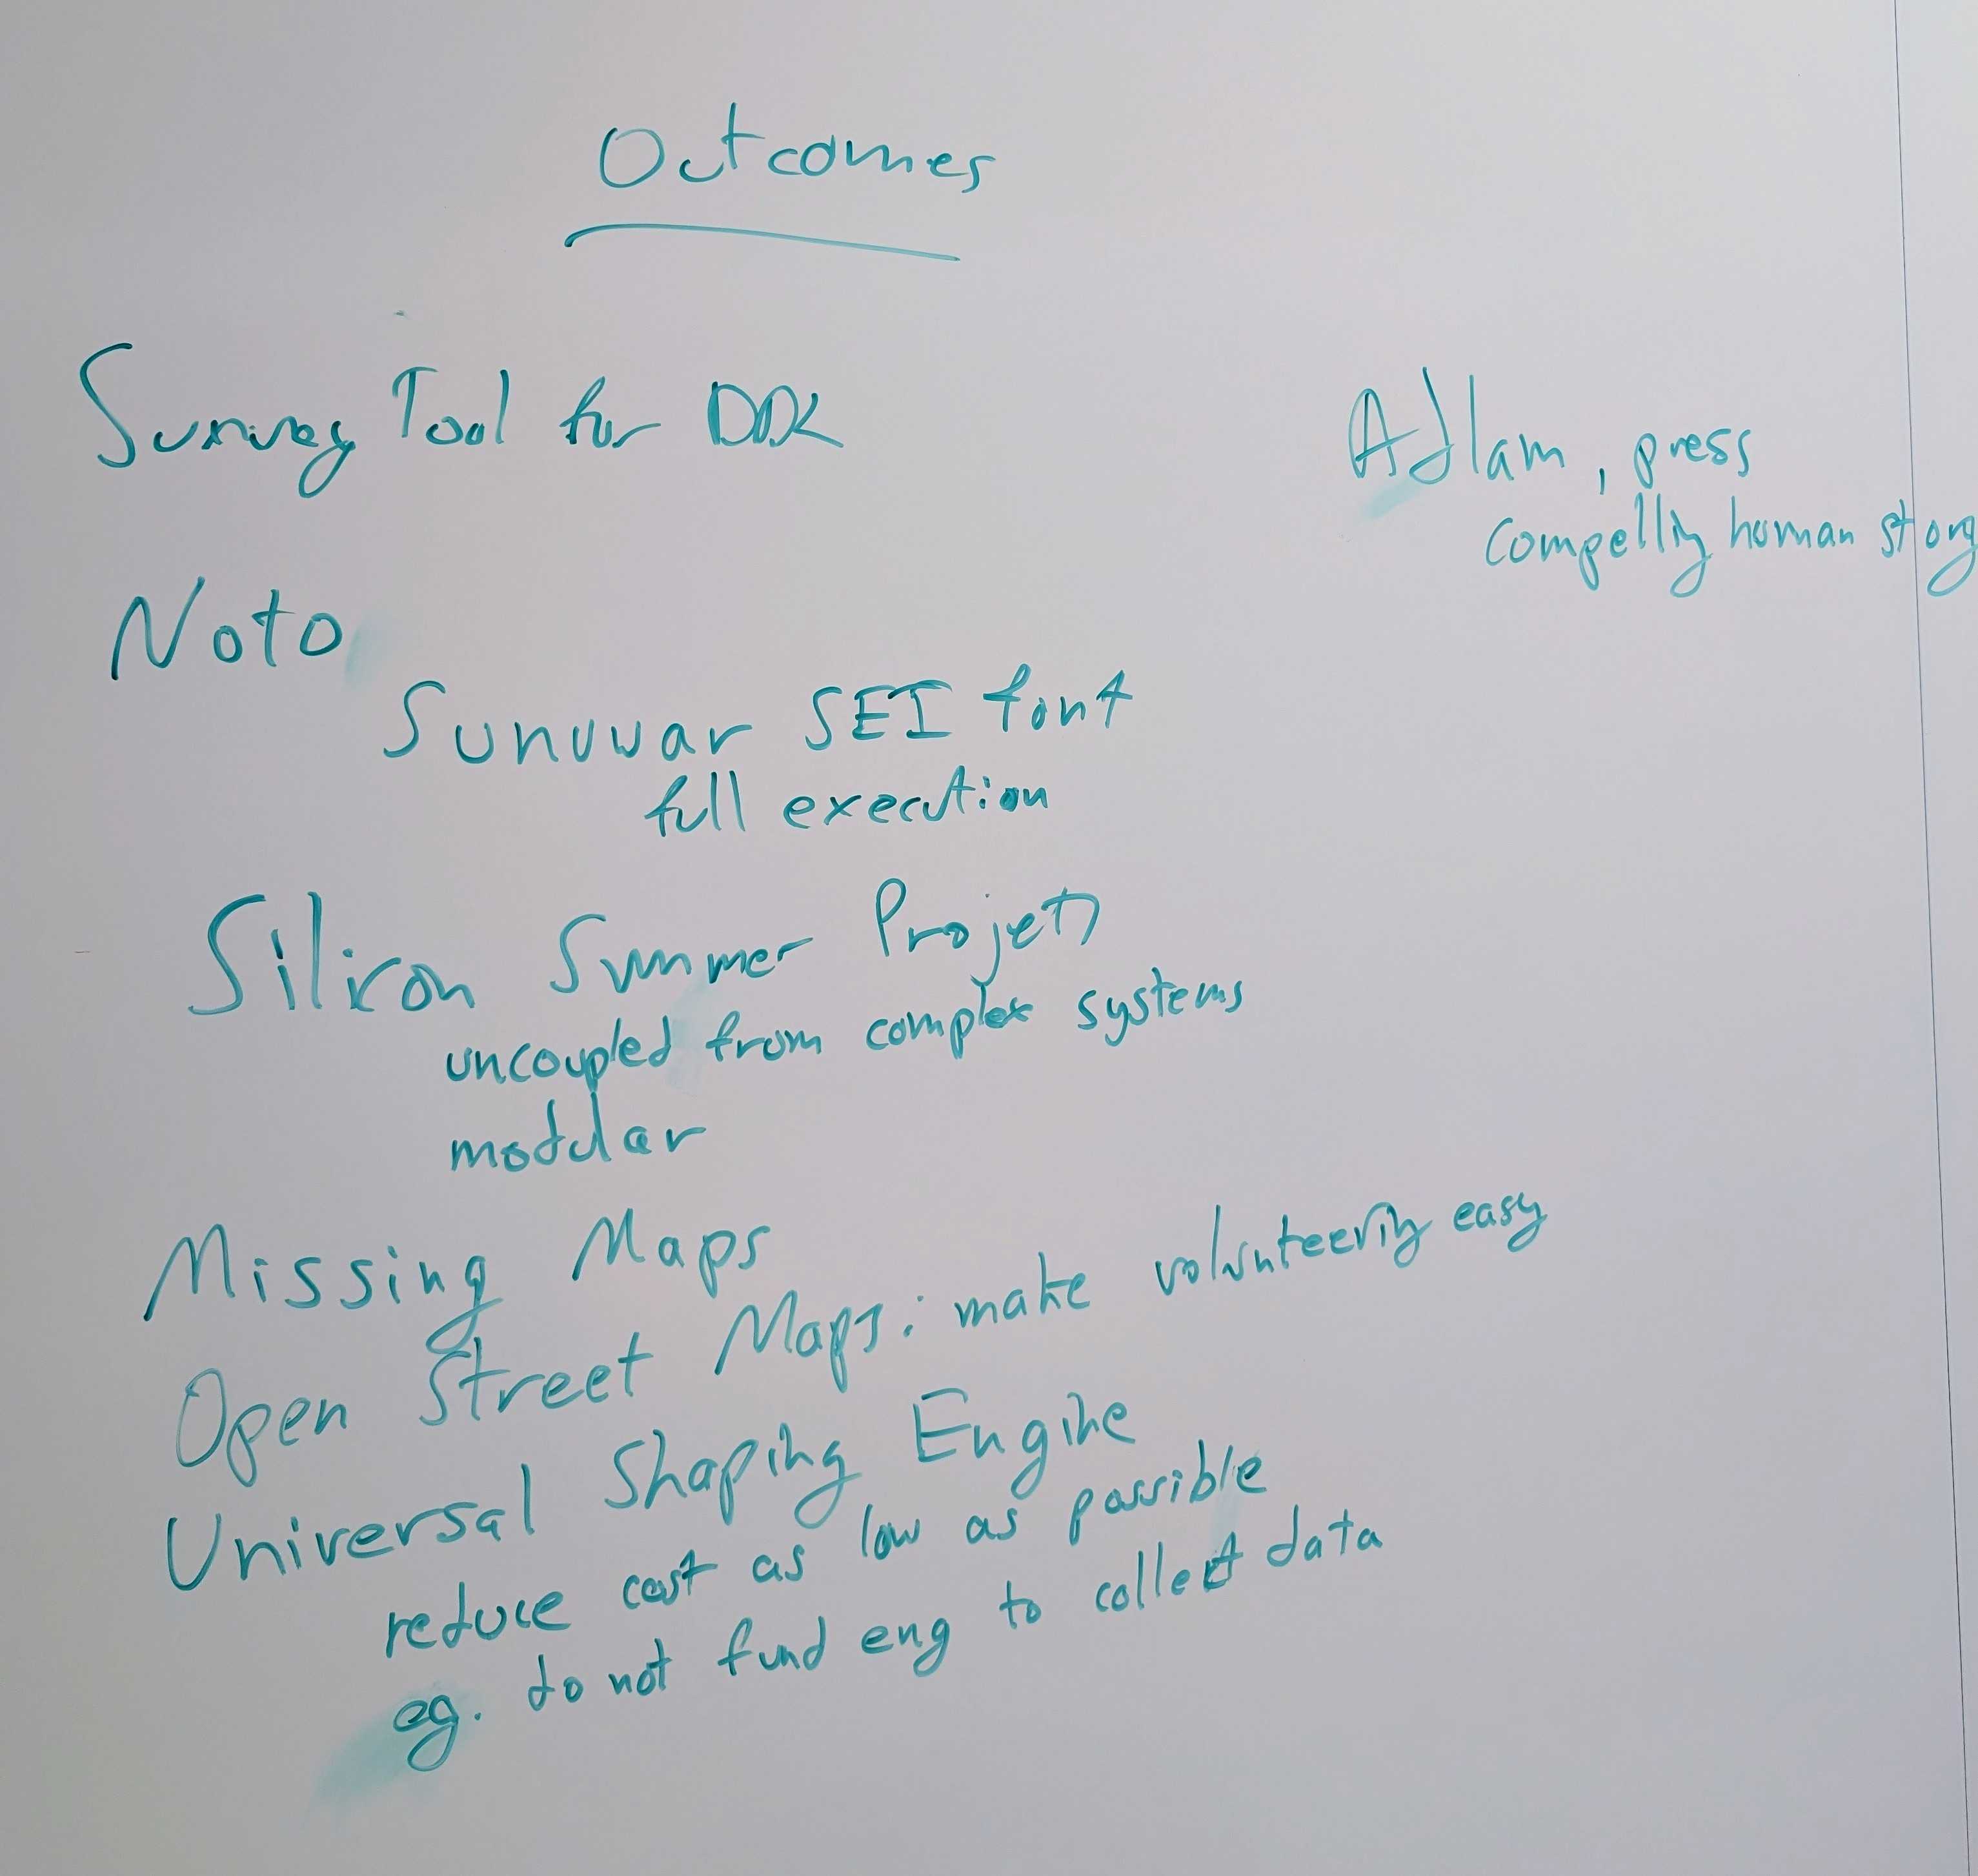 Outcomes
Survey Tool for DDK
Adlam, press
compelling human story
Noto
Sunuwar SEI font
full execution
Silicon Summer Project
uncoupled from complex systems
modular
Missing Maps
Open Street Maps: make volunteering easy
Universal Shaping Engine
reduce cost as low as possible
eg. do not fund eng to collect data